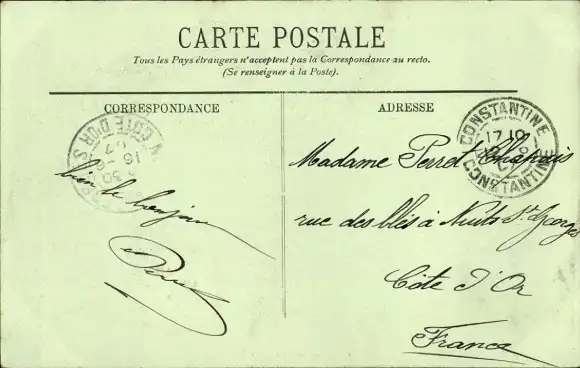 CARTE POSTALE
Tous les Pays étrangers n'acceptent pas la Correspondance au recto.
(Se renseigner à la Poste).
CORRESPONDANCE
ADRESSE
CÔTE D'OR
16
CONSTANTINE
17
CONSTANTINE
bien le bonjour
Madame Perret
rue des blés à Nuits St Georges
Côte d'Or
France